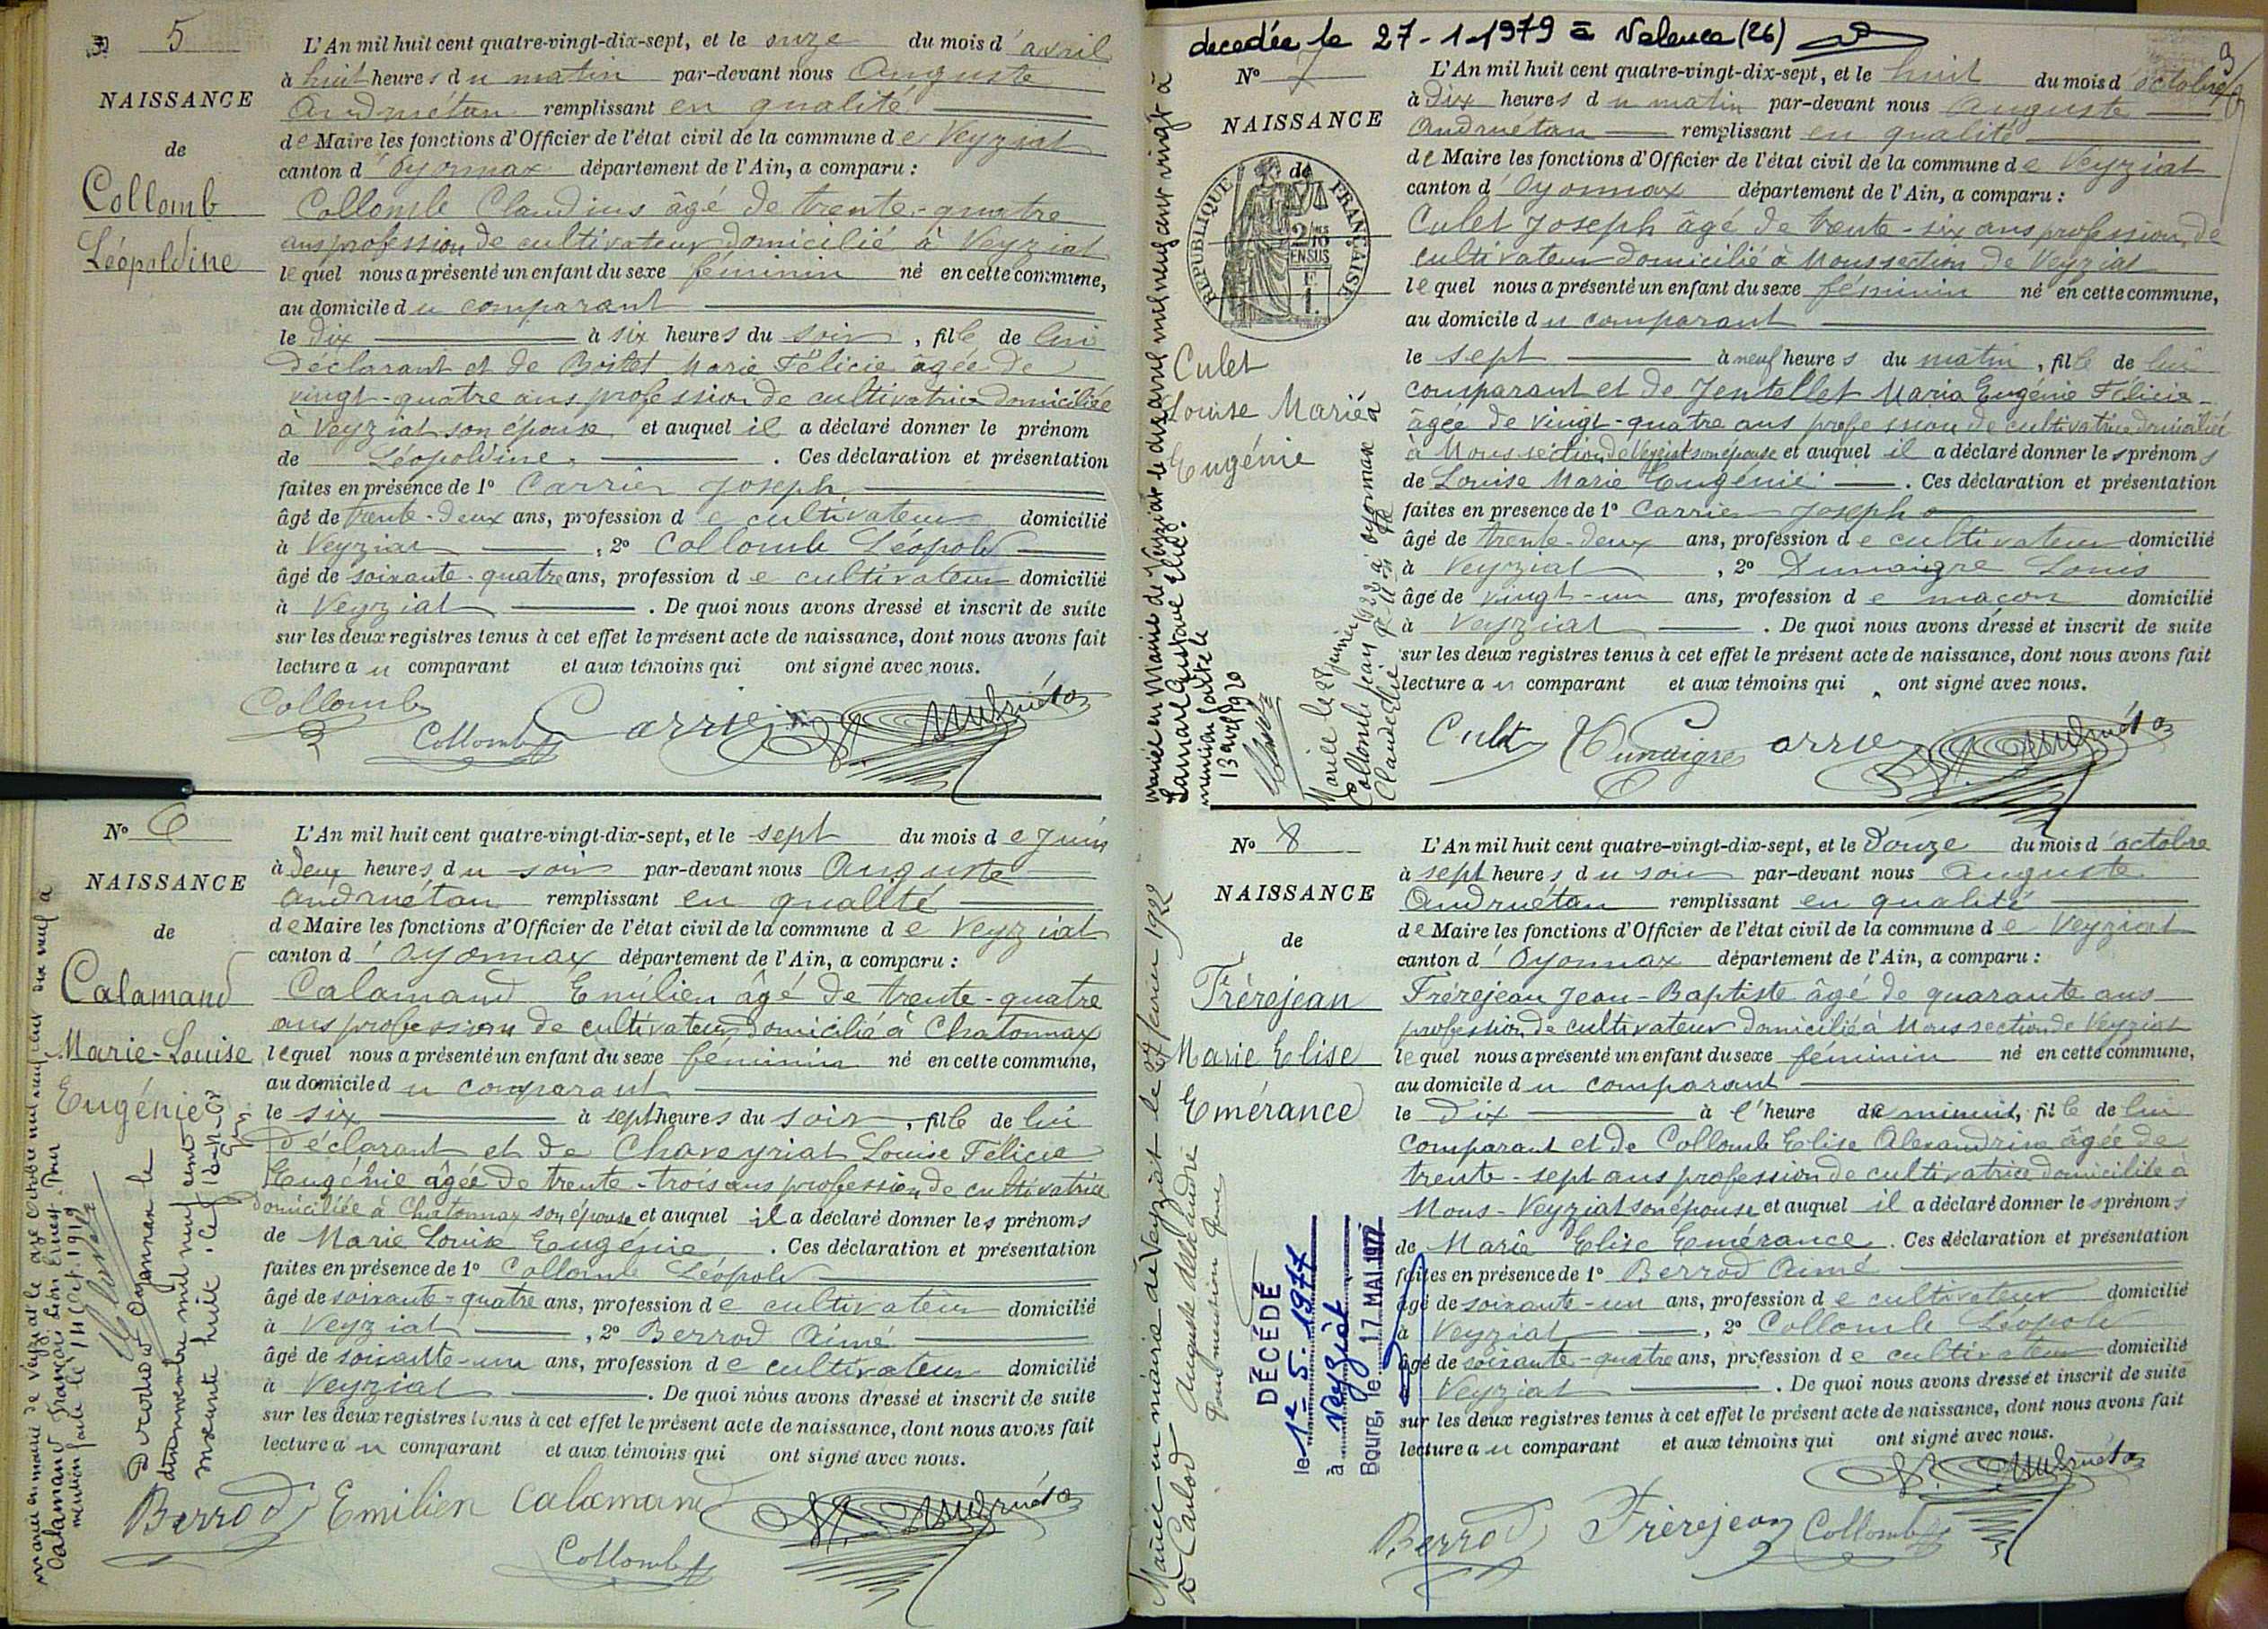 5
NAISSANCE
de
Collomb
Léopoldine
L'An mil huit cent quatre-vingt-dix-sept, et le onze du mois d'avril
à huit heures du matin par-devant nous Auguste
Andruétan remplissant en qualité
de Maire les fonctions d'Officier de l'état civil de la commune de Veyziat
canton d'Oyonnax département de l'Ain, a comparu :
Collomb Claudius âgé de trente-quatre
ans profession de cultivateur domicilié à Veyziat
lequel nous a présenté un enfant du sexe féminin né en cette commune,
au domicile du comparant
le dix à six heures du soir, fille de lui
déclarant et de Marie Félicie âgée de
vingt-quatre ans profession de cultivatrice domiciliée
à Veyziat son épouse et auquel il a déclaré donner le prénom
de Léopoldine. Ces déclaration et présentation
faites en présence de 1° Carrier Joseph
âgé de trente-deux ans, profession de cultivateur domicilié
à Veyziat, 2° Collomb Léopold
âgé de soixante-quatre ans, profession de cultivateur domicilié
à Veyziat. De quoi nous avons dressé et inscrit de suite
sur les deux registres tenus à cet effet le présent acte de naissance, dont nous avons fait
lecture au comparant et aux témoins qui ont signé avec nous.
Collomb
Collomb Carrier Andruétan
N° 6
NAISSANCE
de
Calamand
Marie-Louise
Eugénie
L'An mil huit cent quatre-vingt-dix-sept, et le sept du mois de Juin
à deux heures du soir par-devant nous Auguste
Andruétan remplissant en qualité
de Maire les fonctions d'Officier de l'état civil de la commune de Veyziat
canton d'Oyonnax département de l'Ain, a comparu :
Calamand Emilien âgé de trente-quatre
ans profession de cultivateur domicilié à Chatonnax
lequel nous a présenté un enfant du sexe féminin né en cette commune,
au domicile du comparant
le six à sept heures du soir, fille de lui
déclarant et de Chaveyriat Louise Félicie
Eugénie âgée de trente-trois ans profession de cultivatrice
domiciliée à Chatonnax son épouse et auquel il a déclaré donner les prénoms
de Marie Louise Eugénie. Ces déclaration et présentation
faites en présence de 1° Collomb Léopold
âgé de soixante-quatre ans, profession de cultivateur domicilié
à Veyziat, 2° Berrod Aimé
âgé de soixante-un ans, profession de cultivateur domicilié
à Veyziat. De quoi nous avons dressé et inscrit de suite
sur les deux registres tenus à cet effet le présent acte de naissance, dont nous avons fait
lecture au comparant et aux témoins qui ont signé avec nous.
Berrod Emilien Calamand Andruétan
Collomb
mariée en mairie de Veyziat le onze octobre mil neuf cent dix neuf à
Calamand François Léon Ernest. Pour
mention faite le 14 Oct. 1919
Décédée à Oyonnax le
dix novembre mil neuf cent
soixante huit.
decedée le 27-1-1979 à Valence (26)
3
N° 7
NAISSANCE
de
REPUBLIQUE FRANÇAISE
Culet
Louise Marie
Eugénie
L'An mil huit cent quatre-vingt-dix-sept, et le huit du mois d'octobre
à dix heures du matin par-devant nous Auguste
Andruétan remplissant en qualité
de Maire les fonctions d'Officier de l'état civil de la commune de Veyziat
canton d'Oyonnax département de l'Ain, a comparu :
Culet Joseph âgé de trente-six ans profession de
cultivateur domicilié à Mons section de Veyziat
lequel nous a présenté un enfant du sexe féminin né en cette commune,
au domicile du comparant
le sept à neuf heures du matin, fille de lui
comparant et de Jentellet Maria Eugénie Félicie
âgée de vingt-quatre ans profession de cultivatrice domiciliée
à Mons section de Veyziat son épouse et auquel il a déclaré donner les prénoms
de Louise Marie Eugénie. Ces déclaration et présentation
faites en presence de 1° Carrier Joseph
âgé de trente-deux ans, profession de cultivateur domicilié
à Veyziat, 2° Dunaigre Louis
âgé de vingt-un ans, profession de maçon domicilié
à Veyziat. De quoi nous avons dressé et inscrit de suite
sur les deux registres tenus à cet effet le présent acte de naissance, dont nous avons fait
lecture au comparant et aux témoins qui ont signé avec nous.
Culet Dunaigre Carrier Andruétan
mariée en Mairie de Veyziat le dix avril mil neuf cent vingt à
Gustave Elie.
mention faite le
13 avril 1920
Mariée le 28 à Oyonnax à
Collomb Jean
N° 8
NAISSANCE
de
Frérejean
Marie Elise
Emérance
L'An mil huit cent quatre-vingt-dix-sept, et le douze du mois d'octobre
à sept heures du soir par-devant nous Auguste
Andruétan remplissant en qualité
de Maire les fonctions d'Officier de l'état civil de la commune de Veyziat
canton d'Oyonnax département de l'Ain, a comparu :
Frérejean Jean-Baptiste âgé de quarante ans
profession de cultivateur domicilié à Mons section de Veyziat
lequel nous a présenté un enfant du sexe féminin né en cette commune,
au domicile du comparant
le dix à l'heure de minuit, fille de lui
comparant et de Collomb Elise Alexandrine âgée de
trente-sept ans profession de cultivatrice domiciliée à
Mons-Veyziat son épouse et auquel il a déclaré donner les prénoms
de Marie Elise Emérance. Ces déclaration et présentation
faites en présence de 1° Berrod Aimé
âgé de soixante-un ans, profession de cultivateur domicilié
à Veyziat, 2° Collomb Léopold
âgé de soixante-quatre ans, profession de cultivateur domicilié
à Veyziat. De quoi nous avons dressé et inscrit de suite
sur les deux registres tenus à cet effet le présent acte de naissance, dont nous avons fait
lecture au comparant et aux témoins qui ont signé avec nous.
Andruétan
Berrod Frérejean Collomb
Mariée en mairie de Veyziat le 27 février 1922
à Carlod Auguste Alexandre
Pour mention
DÉCÉDÉ
le 1er 5. 1977
à Veyziat
Bourg, le 17 MAI 1977